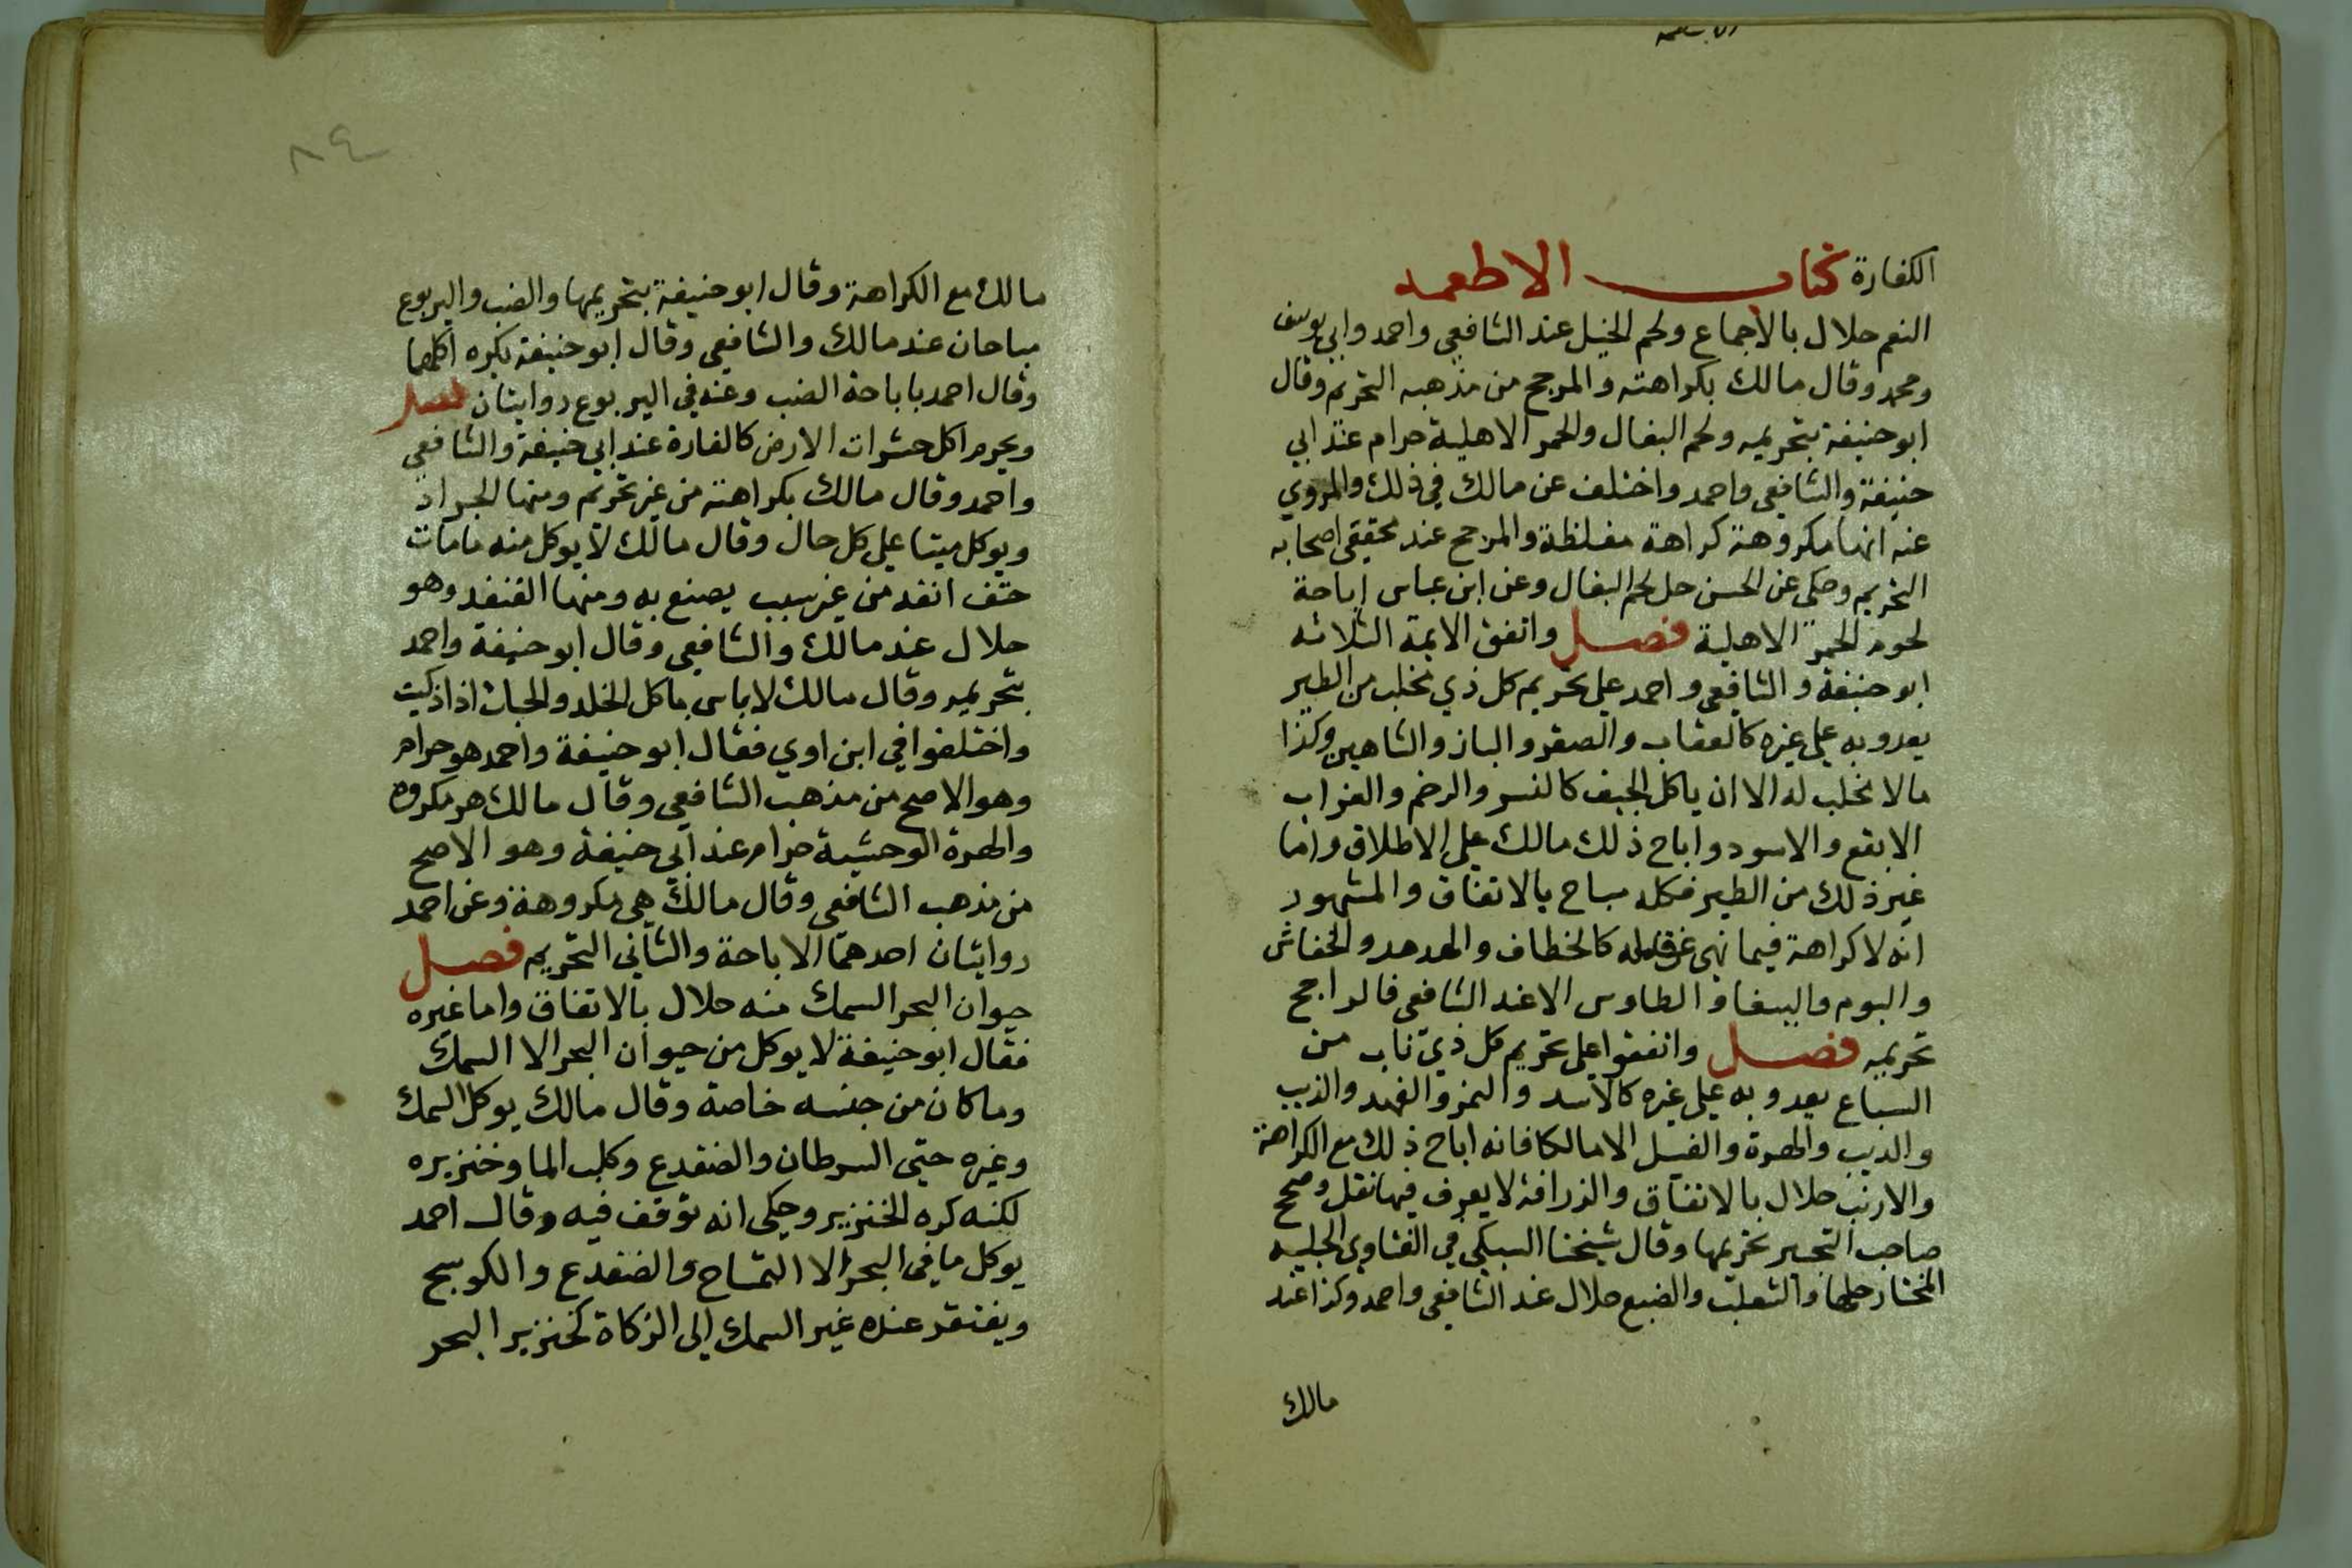 الكفارة كتاب الاطعمه
النعم حلال بالاجماع ولحم الخيل عند الشافعي واحمد وابي يوسف
ومحمد وقال مالك بكراهته والمرجح من مذهبه التحريم وقال
ابو حنيفة بتحريمه ولحم البغال والحمر الاهلية حرام عند ابي
حنيفة والشافعي واحمد واختلف عن مالك في ذلك والمروي
عنه انها مكروهة كراهة مغلظة والمرجح عند محققي اصحابه
التحريم وحكي عن الحسن حل لحم البغال وعن ابن عباس اباحة
لحوم الحمر الاهلية فصل واتفق الايمة الثلاثه
ابو حنيفة والشافعي واحمد علي تحريم كل ذي مخلب من الطير
يعدو به علي غيره كالعقاب والصقر والباز والشاهين وكذا
مالا مخلب له الا ان ياكل الجيف كالنسر والرخم والغراب
الابقع والاسود واباح ذلك مالك علي الاطلاق واما
غير ذلك من الطير فكله مباح بالاتفاق والمشهور
انه لا كراهة فيما نهي عن قتله كالخطاف والهدهد والخفاش
والبوم والببغا والطاوس الا عند الشافعي فالراجح
تحريمه فصل واتفقوا علي تحريم كل ذي ناب من
السباع يعدو به علي غيره كالاسد والنمر والفهد والذيب
والدب والهرة والفيل الا مالكا فانه اباح ذلك مع الكراهة
والارنب حلال بالاتفاق والزرافة لا يعرف فيها نقل وصحح
صاحب التنبيه تحريمها وقال شيخنا السبكي في الفتاوي الحلبيه
المختار حلها والثعلب والضبع حلال عند الشافعي واحمد وكذا عند
مالك
٨٤
مالك مع الكراهة وقال ابو حنيفة بتحريمها والضب واليربوع
مباحان عند مالك والشافعي وقال ابو حنيفة يكره اكلهما
وقال احمد باباحة الضب وعنه في اليربوع روايتان فصل
ويحرم اكل حشرات الارض كالفارة عند ابي حنيفة والشافعي
واحمد وقال مالك بكراهته من غير تحريم ومنها الجراد
ويوكل ميتا علي كل حال وقال مالك لا يوكل منه مامات
حتف انفه من غير سبب يصنع به ومنها القنفد وهو
حلال عند مالك والشافعي وقال ابو حنيفة واحمد
بتحريمه وقال مالك لا باس باكل الخلد والحيات اذا ذكيت
واختلفوا في ابن اوي فقال ابو حنيفة واحمد هو حرام
وهو الاصح من مذهب الشافعي وقال مالك هو مكروه
والهرة الوحشية حرام عند ابي حنيفة وهو الاصح
من مذهب الشافعي وقال مالك هي مكروهة وعن احمد
روايتان احدهما الاباحة والثاني التحريم فصل
حيوان البحر السمك منه حلال بالاتفاق واما غيره
فقال ابو حنيفة لا يوكل من حيوان البحر الا السمك
وما كان من جنسه خاصة وقال مالك يوكل السمك
وغيره حتي السرطان والضفدع وكلب الما وخنزيره
لكنه كره الخنزير وحكي انه توقف فيه وقال احمد
يوكل ما في البحر الا التمساح والضفدع والكوسج
ويفتقر عنده غير السمك الي الزكاة كخنزير البحر